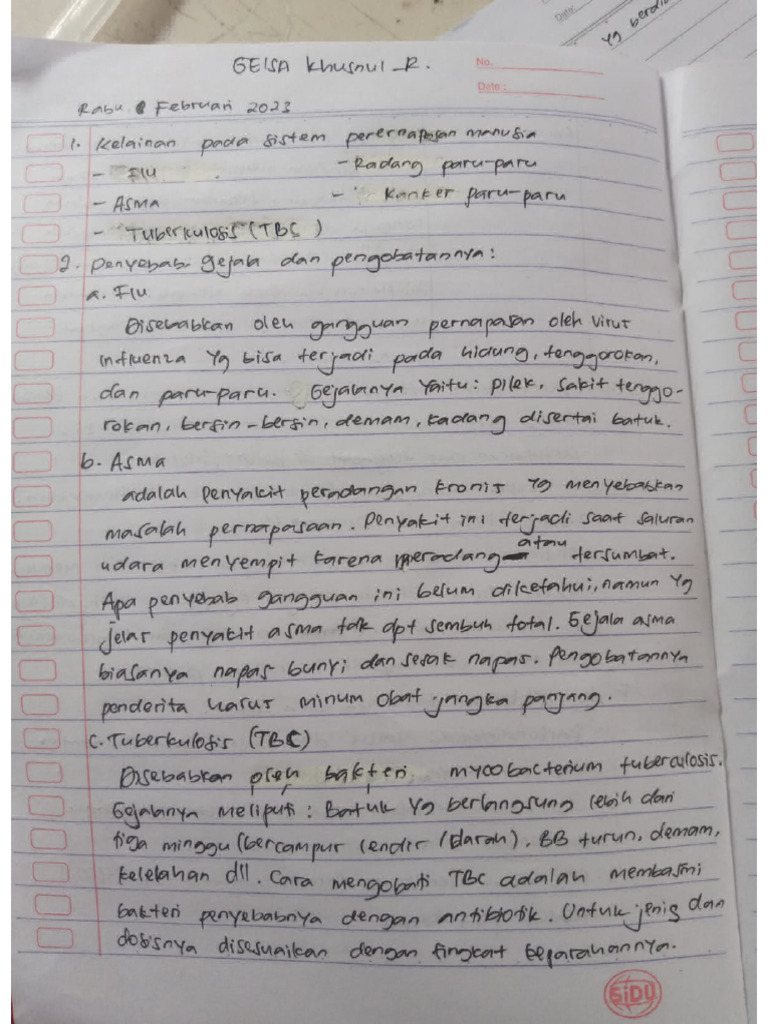 Date
Yg berdi
GEISA Khusnul R.
No.
Date:
Rabu, 8 Februari 2023
1. Kelainan pada sistem perernapasan manusia
- Flu - Radang paru-paru
- Asma - Kanker paru-paru
- Tuberkulosis (TBC)
2. Penyebab gejala dan pengobatannya:
a. Flu
Disebabkan oleh gangguan pernapasan oleh virus
influenza Yg bisa terjadi pada hidung, tenggorokan,
dan paru-paru. Gejalanya Yaitu: pilek, sakit tenggo-
rokan, bersin-bersin, demam, kadang disertai batuk.
b. Asma
adalah penyakit peradangan kronis Yg menyebabkan
masalah pernapasaan. Penyakit ini terjadi saat saluran
udara menyempit karena meradang atau tersumbat.
Apa penyebab gangguan ini belum diketahui, namun Yg
jelas penyakit asma tdk dpt sembuh total. Gejala asma
biasanya napas bunyi dan sesak napas. Pengobatannya
penderita harus minum obat jangka panjang.
c. Tuberkulosis (TBC)
Disebabkan oleh bakteri mycobacterium tuberculosis.
Gejalanya meliputi: Batuk Yg berlangsung lebih dari
tiga minggu (bercampur lendir/darah), BB turun, demam,
kelelahan dll. Cara mengobati TBC adalah membasmi
bakteri penyebabnya dengan antibiotik. Untuk jenis dan
dosisnya disesuaikan dengan tingkat keparahannya.
SIDU